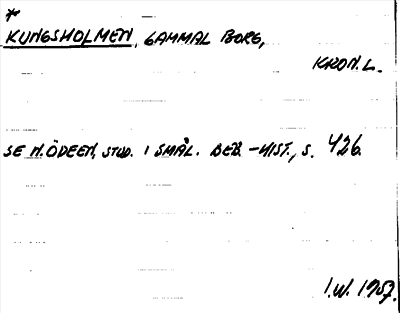 *
KUNGSHOLMEN, GAMMAL BORG,
KRON. L.
SE N. ÖDEEN, STUD. I SMÅL. BEB. -HIST., S. 426.
I.W. 1957.